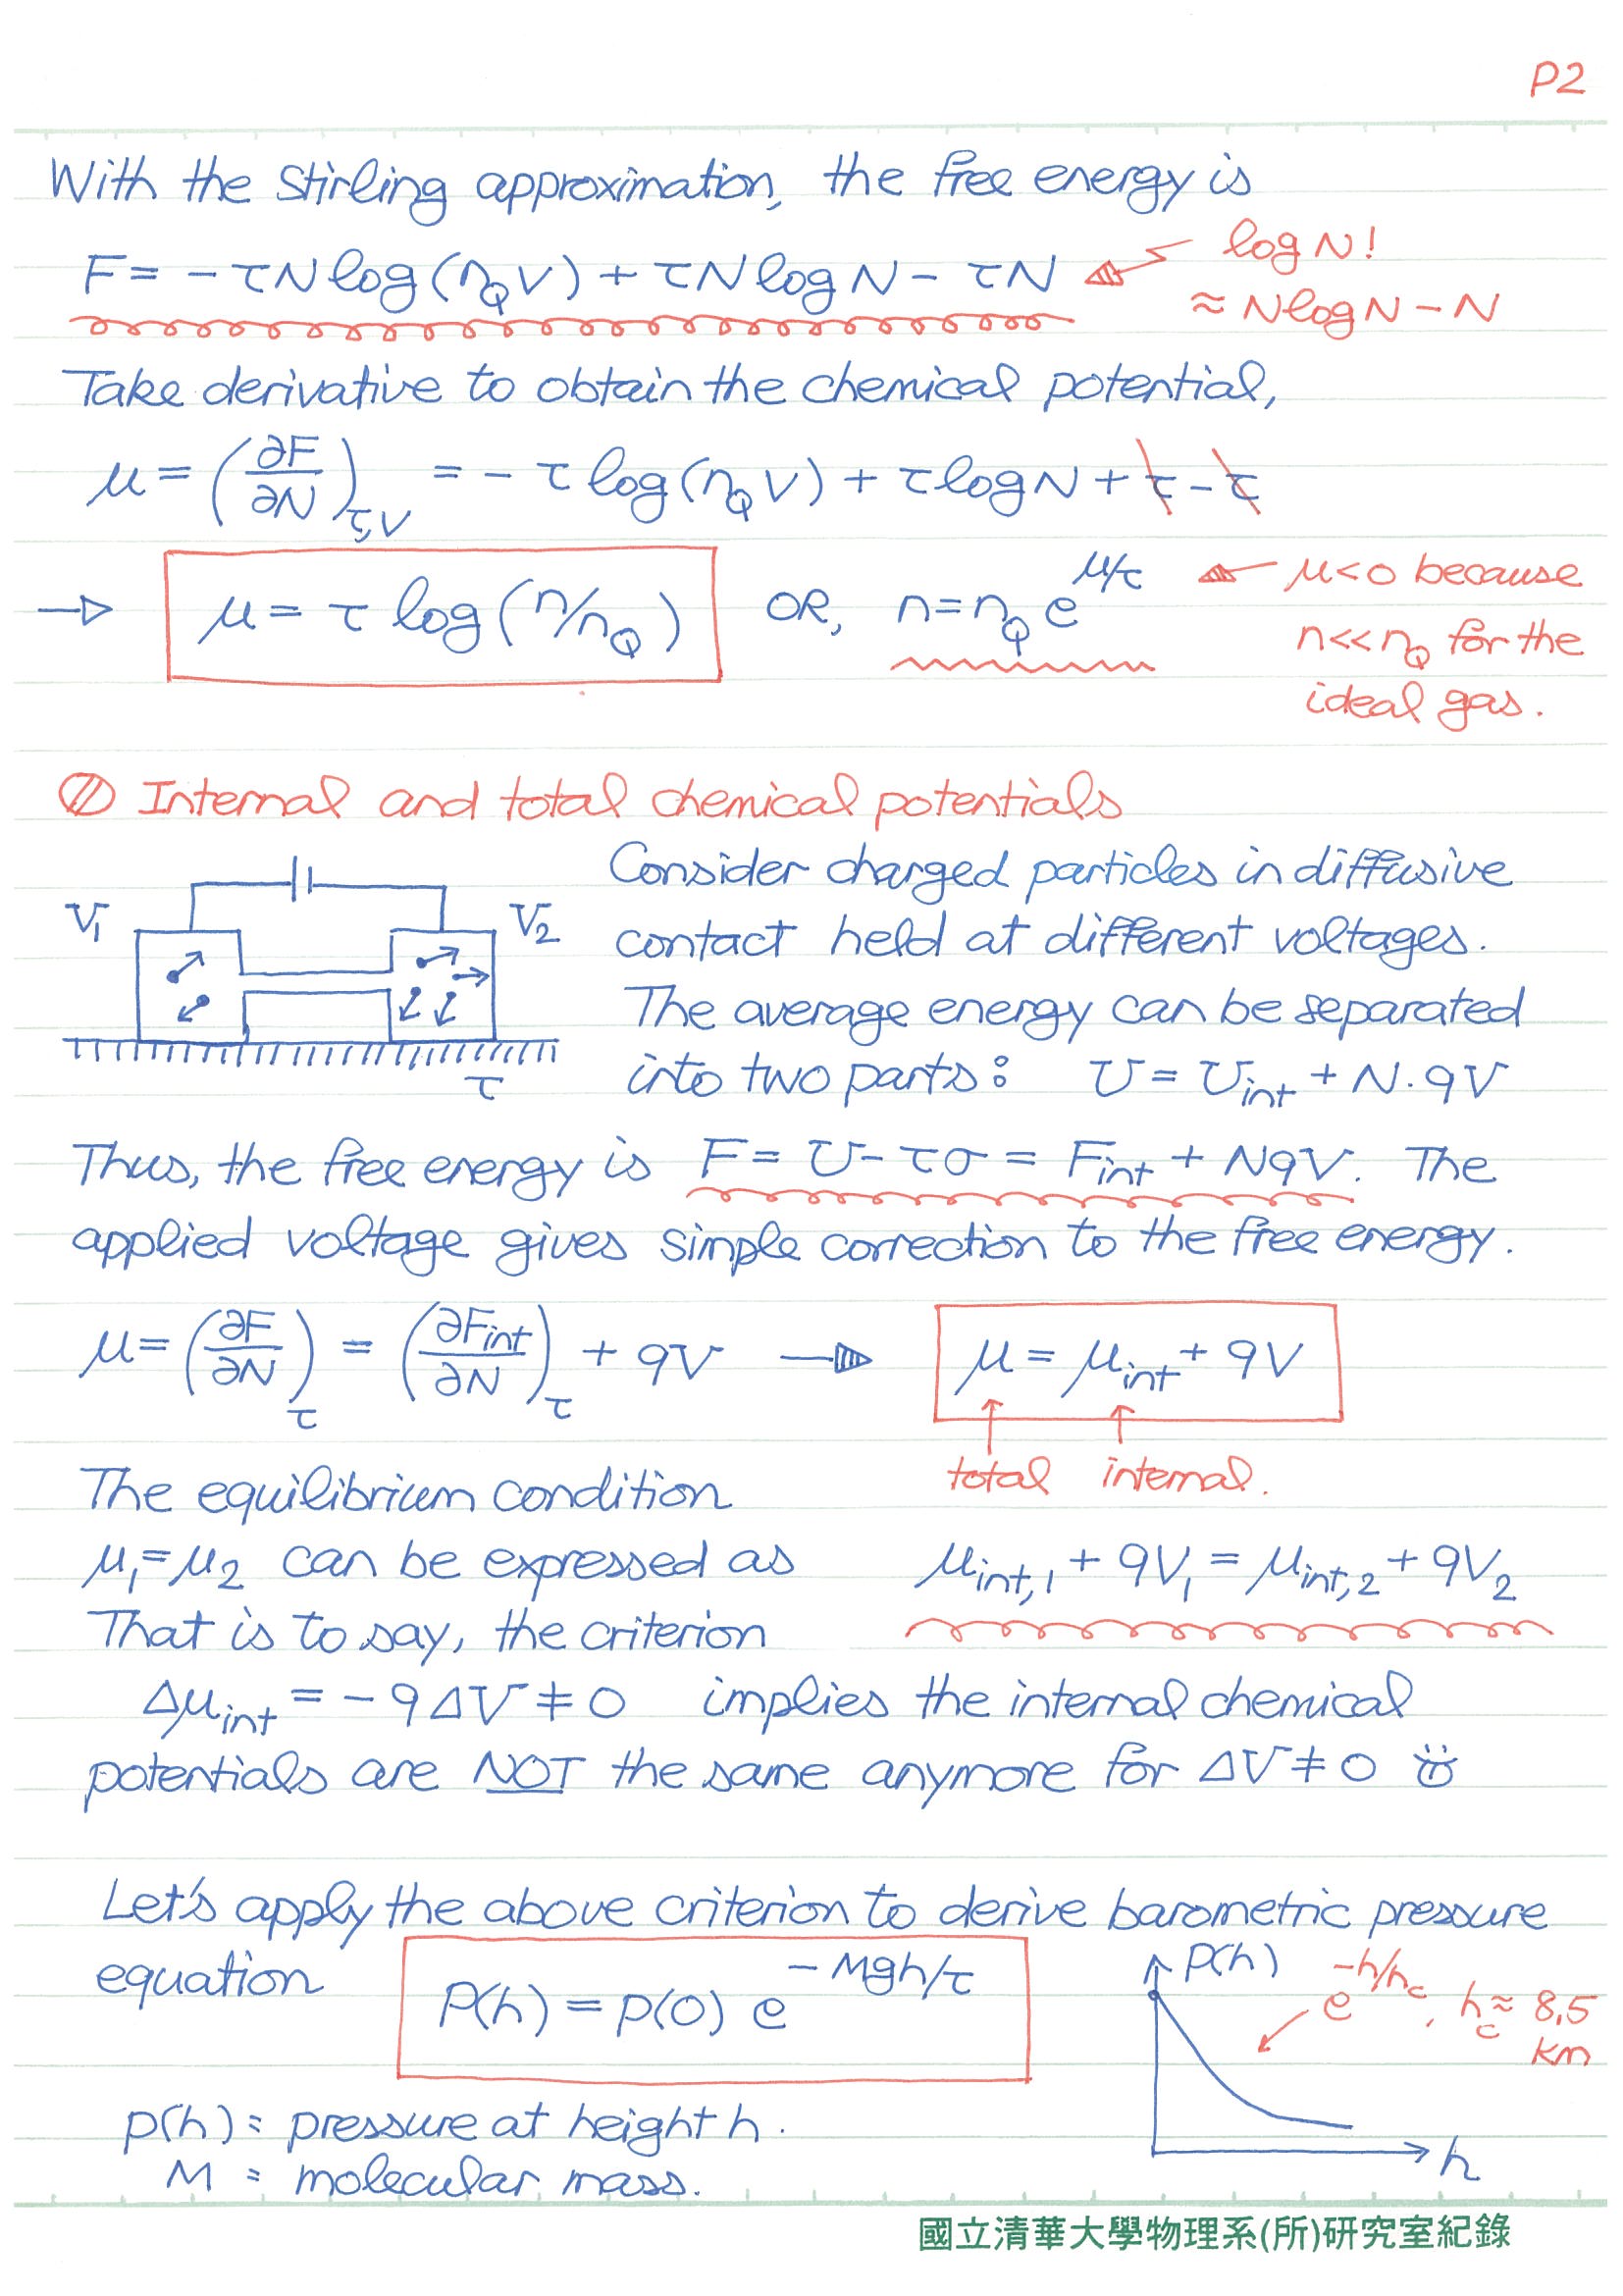 P2
With the Stirling approximation, the free energy is
F = - τN log(n_Q V) + τN log N - τN
log N!
≈ N log N - N
Take derivative to obtain the chemical potential,
μ = (∂F/∂N)_τ,V = - τ log(n_Q V) + τ log N + τ - τ
→ μ = τ log (n/n_Q) OR, n = n_Q e^μ/τ
μ<0 because
n<<n_Q for the
ideal gas.
Internal and total chemical potentials
V₁ V₂
τ
Consider charged particles in diffusive
contact held at different voltages.
The average energy can be separated
into two parts: U = U_int + N·qV
Thus, the free energy is F = U - τσ = F_int + NqV. The
applied voltage gives simple correction to the free energy.
μ = (∂F/∂N)_τ = (∂F_int/∂N)_τ + qV → μ = μ_int + qV
total internal.
The equilibrium condition
μ₁ = μ₂ can be expressed as μ_int,1 + qV₁ = μ_int,2 + qV₂
That is to say, the criterion
Δμ_int = - qΔV ≠ 0 implies the internal chemical
potentials are NOT the same anymore for ΔV ≠ 0
Let's apply the above criterion to derive barometric pressure
equation P(h) = p(0) e^-Mgh/τ
P(h)
e^-h/h_c, h_c ≈ 8.5
km
h
p(h) : pressure at height h.
M : molecular mass.
國立清華大學物理系(所)研究室紀錄